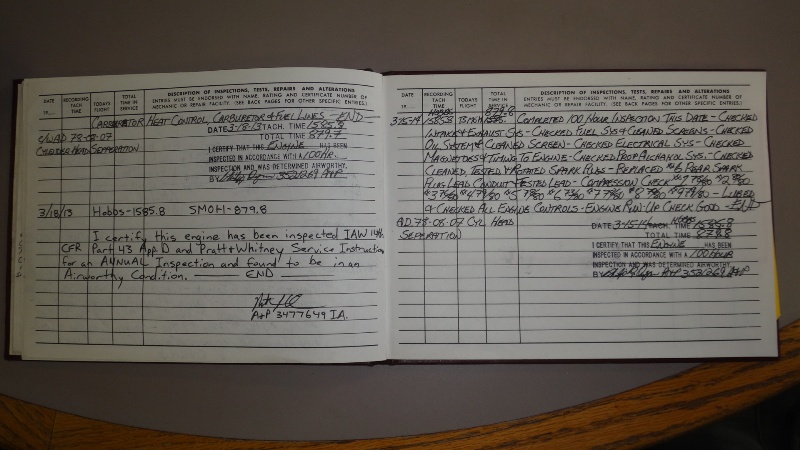 DATE
19
RECORDING TACH TIME
TODAYS FLIGHT
TOTAL TIME IN SERVICE
DESCRIPTION OF INSPECTIONS, TESTS, REPAIRS AND ALTERATIONS
ENTRIES MUST BE ENDORSED WITH NAME, RATING AND CERTIFICATE NUMBER OF
MECHANIC OR REPAIR FACILITY. (SEE BACK PAGES FOR OTHER SPECIFIC ENTRIES.)
CARBERATOR HEAT CONTROL, CARBURETOR & FUEL LINES - END
DATE 3-18-13 TACH. TIME 1585.8
TOTAL TIME 879.7
C/W AD 78-08-07
CYLINDER HEAD SEPPERATION
I CERTIFY THAT THIS ENGINE HAS BEEN
INSPECTED IN ACCORDANCE WITH A 100HR.
INSPECTION AND WAS DETERMINED AIRWORTHY.
BY 3531269 A+P
3/18/13 Hobbs-1585.8 SMOH-879.8
I certify this engine has been inspected IAW 14
CFR Part 43 App D and Pratt + Whitney Service Instruction
for an ANNUAL Inspection and found to be in an
Airworthy Condition. END
A+P 3477649 IA.
DATE
19
RECORDING TACH TIME
TODAYS FLIGHT
TOTAL TIME IN SERVICE
DESCRIPTION OF INSPECTIONS, TESTS, REPAIRS AND ALTERATIONS
ENTRIES MUST BE ENDORSED WITH NAME, RATING AND CERTIFICATE NUMBER OF
MECHANIC OR REPAIR FACILITY. (SEE BACK PAGES FOR OTHER SPECIFIC ENTRIES.)
HOBBS
3-15-14 1585.8 COMPLETED 100 HOUR INSPECTION THIS DATE - CHECKED
INTAKE & EXHAUST SYS - CHECKED FUEL SYS & CLEANED SCREENS - CHECKED
OIL SYSTEM & CLEANED SCREEN - CHECKED ELECTRICAL SYS - CHECKED
MAGNETOES & TIMING TO ENGINE - CHECKED PROP ALCHANOL SYS. - CHECKED
CLEANED TESTED & ROTATED SPARK PLUGS - REPLACED #6 REAR SPARK
PLUG LEAD CONDUIT - TESTED LEAD - COMPRESSION CHECK
- LUBED
& CHECKED ALL ENGINE CONTROLS - ENGINE RUN-UP CHECK GOOD - END
AD 78-08-07 CYL HEAD
SEPERATION
HOBBS
DATE 3-15-14 TACH. TIME 1585.8
TOTAL TIME 878.8
I CERTIFY, THAT THIS ENGINE HAS BEEN
INSPECTED IN ACCORDANCE WITH A 100 HOUR
INSPECTION AND WAS DETERMINED AIRWORTHY
BY A+P 3531269 A+P